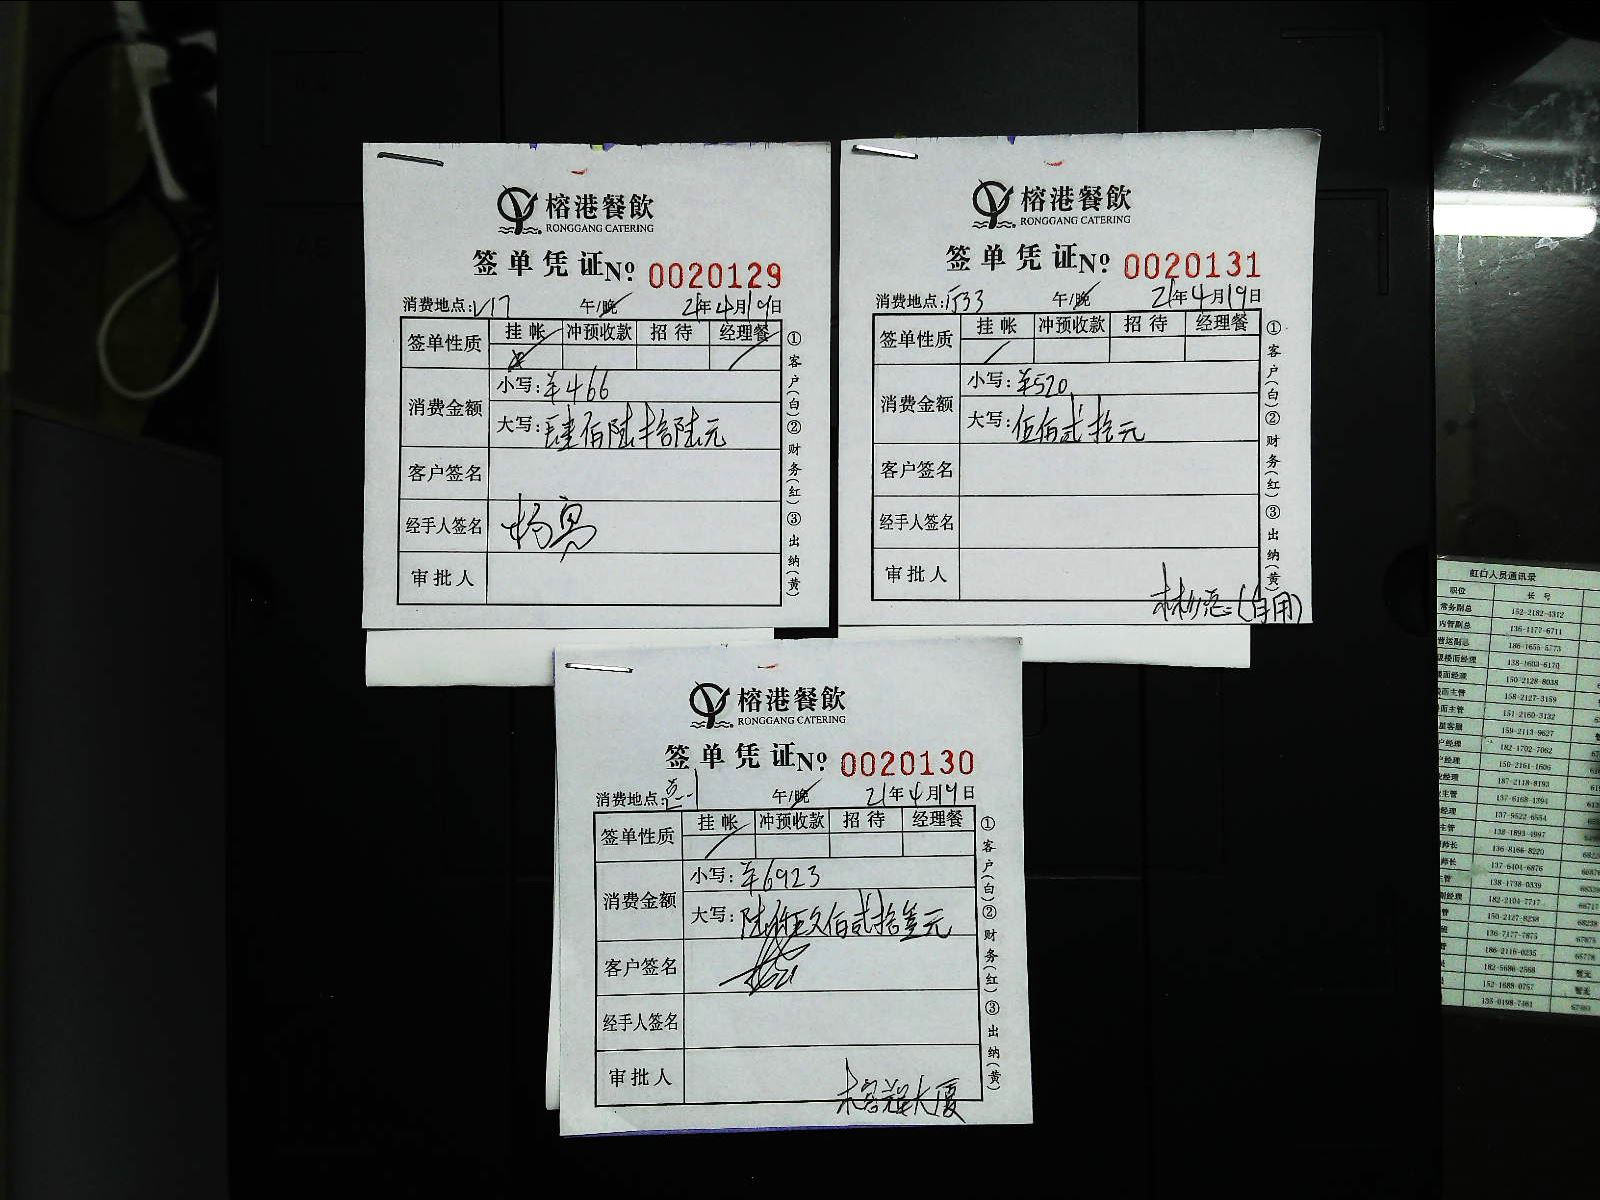 榕港餐飲
RONGGANG CATERING
签单凭证 No 0020129
消费地点:V17 午/晚 21年4月19日
签单性质 挂帐 冲预收款 招待 经理餐
消费金额
小写:¥466
大写:肆佰陆拾陆元
客户签名
经手人签名
审批人
①客户(白)②财务(红)③出纳(黄)
榕港餐飲
RONGGANG CATERING
签单凭证 No 0020131
消费地点:厅33 午/晚 21年4月19日
签单性质 挂帐 冲预收款 招待 经理餐
消费金额
小写:¥520
大写:伍佰贰拾元
客户签名
经手人签名
审批人
(自用)
①客户(白)②财务(红)③出纳(黄)
榕港餐飲
RONGGANG CATERING
签单凭证 No 0020130
消费地点: 午/晚 21年4月19日
签单性质 挂帐 冲预收款 招待 经理餐
消费金额
小写:¥6923
大写:陆仟玖佰贰拾叁元
客户签名
经手人签名
审批人
榕辉大厦
①客户(白)②财务(红)③出纳(黄)
虹口人员通讯录
职位 长号
常务副总 152-2182-4312
内管副总 136-1177-6711
营运副总 186-1655-5773
138-1603-6170
150-2128-8038
158-2127-3159
151-2160-3132
159-2113-9627
182-1702-7062
150-2161-1606
187-2118-8193
137-6168-1394
137-9522-6554
138-1893-4997
136-8166-8220
137-6404-6876
138-1738-0339
182-2104-7717
150-2127-8238
136-7177-7875
186-2116-0235
182-5686-2568
152-1688-0757